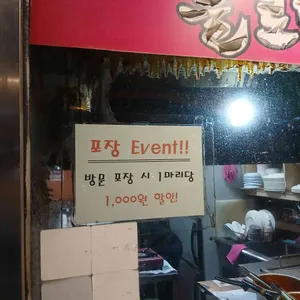 포장 Event!!
방문 포장 시 1마리당
1,000원 할인!